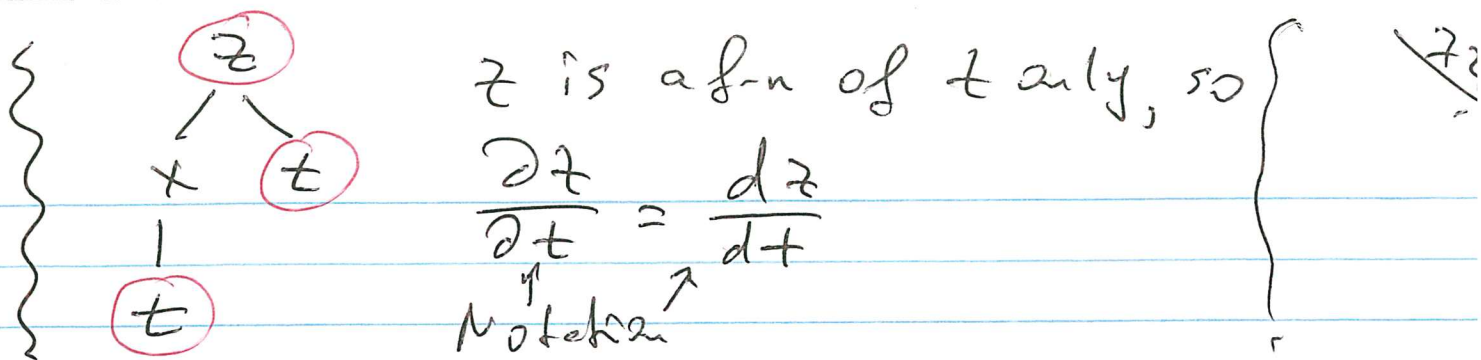 z
x t
t
z is a f-n of t only, so
∂z/∂t = dz/dt
Notation